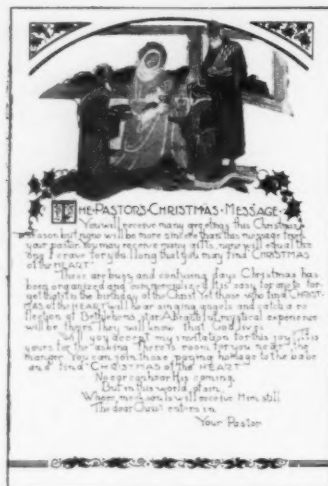 THE·PASTORS·CHRISTMAS·MESSAGE
You will receive many greetings this Christmas
season but none will be more sincere than this message from
your pastor. You may receive many gifts, none will equal the
one I crave for you. I long that you may find CHRISTMAS
of the HEART
These are busy and confusing days Christmas has
been organized and commercialized. It is easy for any to for-
get that it is the birthday of the Christ. Yet those who find CHRIST-
MAS of the HEART will hear singing angels and catch a re-
flection of Bethlehems star. A beautiful mystical experience
will be theirs They will know that God lives.
Will you accept my invitation for this joy. It is
yours for the asking. There's room for you near the
manger. You can join those paying homage to the babe
and find "CHRISTMAS of the HEART"
No ear can hear His coming,
But in this world of sin,
Where meek souls will receive Him still
The dear Christ enters in.
Your Pastor